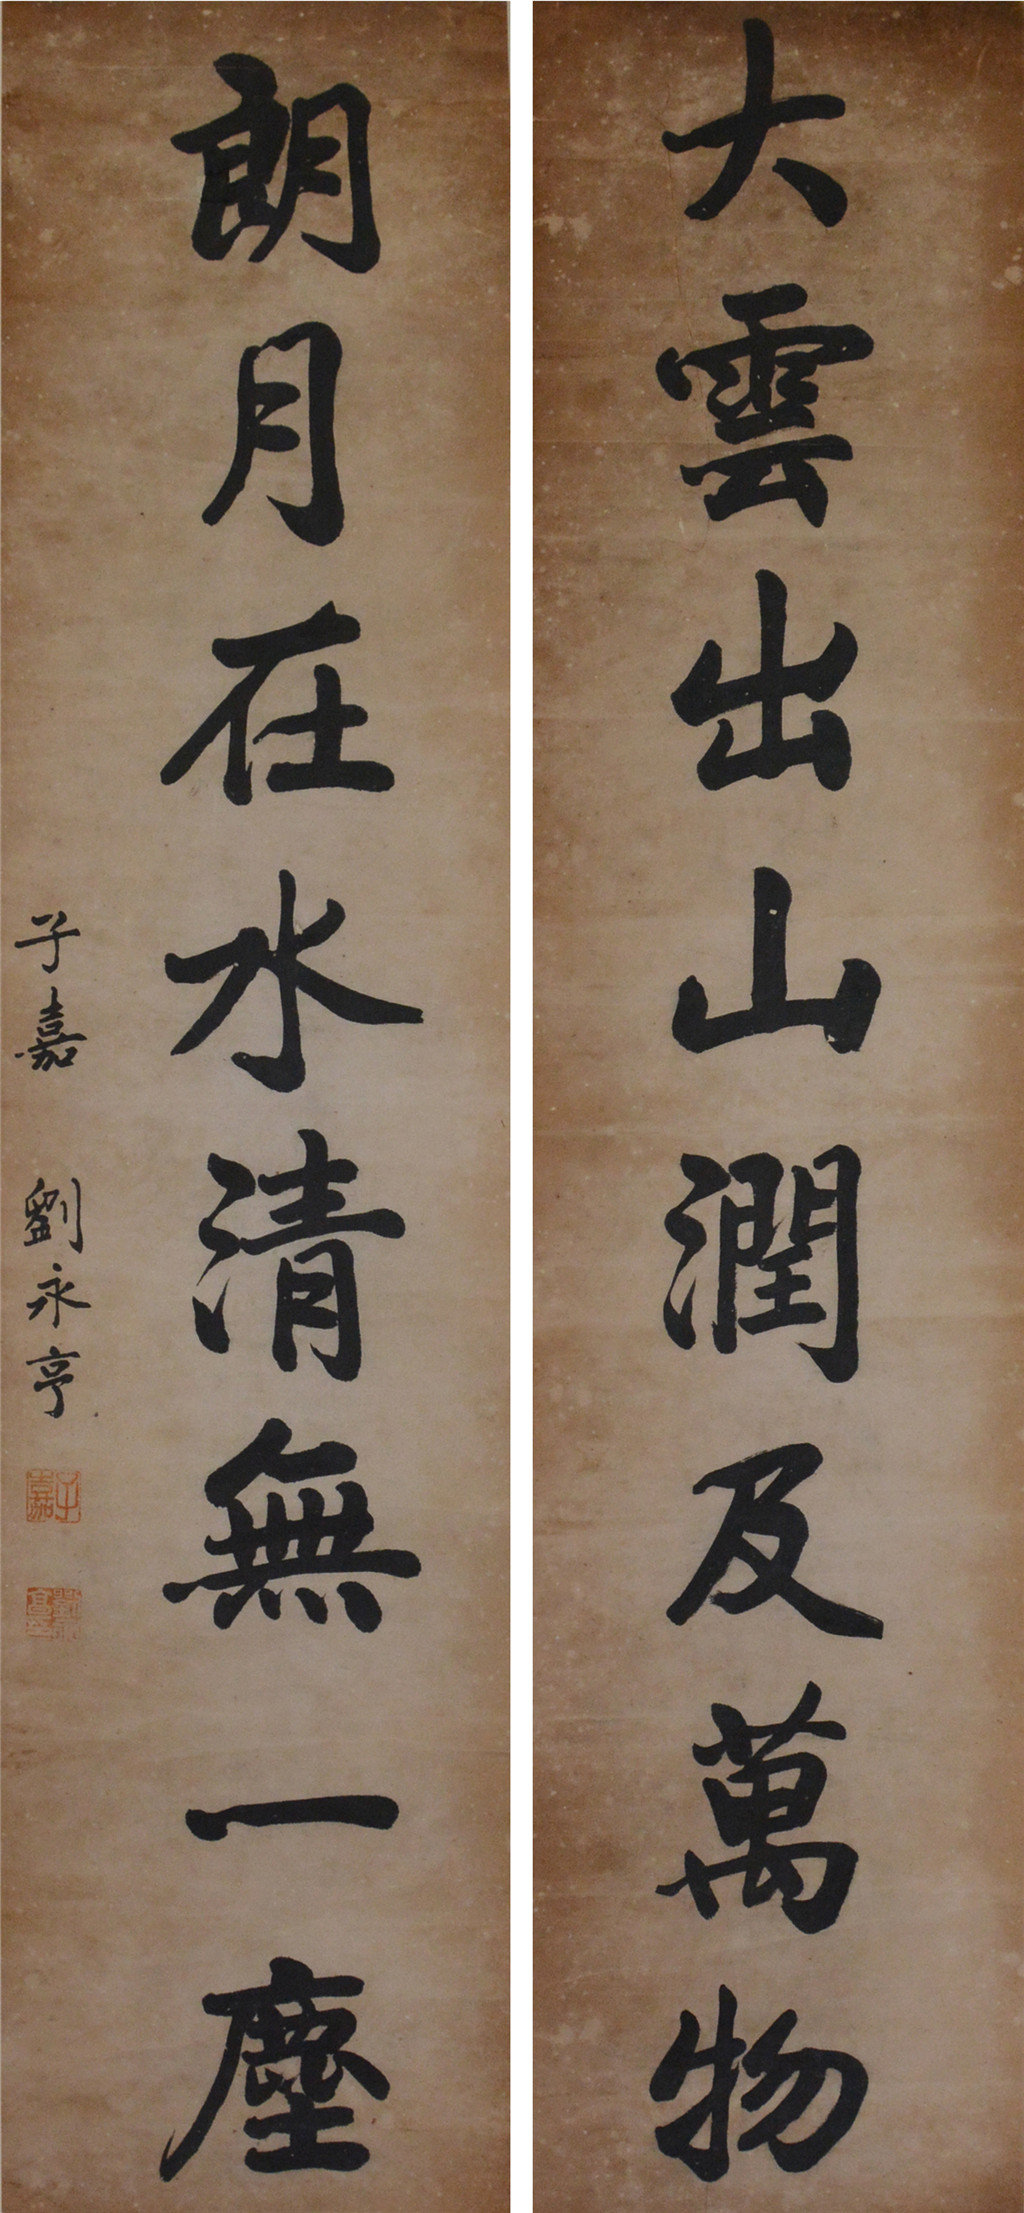 大雲出山潤及萬物
朗月在水清無一塵
子嘉 劉永亨
子嘉